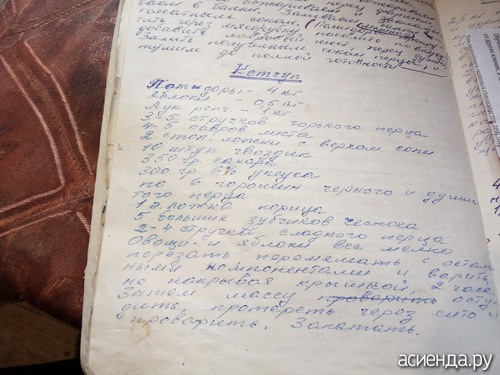 томатным соком
тить через мясорубку
добавить
Залить полученным соком перцы и
тушим до полной готовности
Кетчуп
Помидоры - 4 кг
Яблоки - 0,5 кг
Лук репч. - 1 кг
3-5 стручков горького перца
4-5 лавров. листа
2 стол. ложки с верхом соли
10 штук гвоздик
350 гр. сахара
300 гр. 6% уксуса
по 6 горошин черного и души
того перца
1 ч. ложка корица
5 больших зубчиков чеснока
2-4 стручка сладкого перца
Овощи и яблоки все мелко
порезать перемешать с осталь
ными компонентами и варить
не накрывая крышкой, 2 часа.
Затем массу проварить осту
дить, протереть через сито и
проварить. Закатать.
асиенда.ру